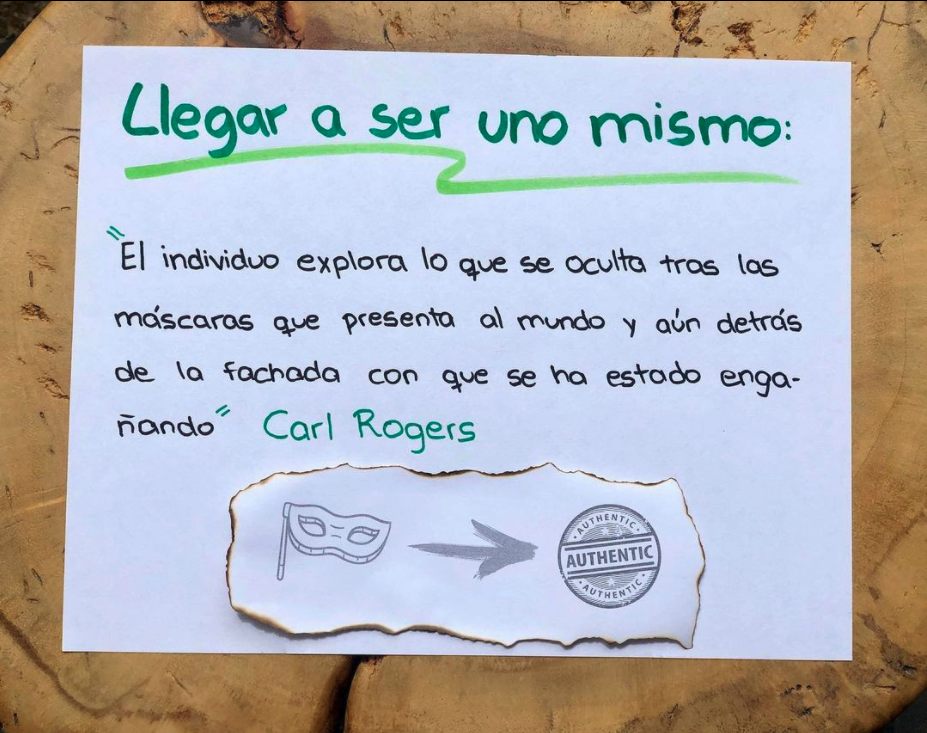 Llegar a ser uno mismo:
"El individuo explora lo que se oculta tras las
máscaras que presenta al mundo y aún detrás
de la fachada con que se ha estado enga-
ñando" Carl Rogers
AUTHENTIC
AUTHENTIC
AUTHENTIC